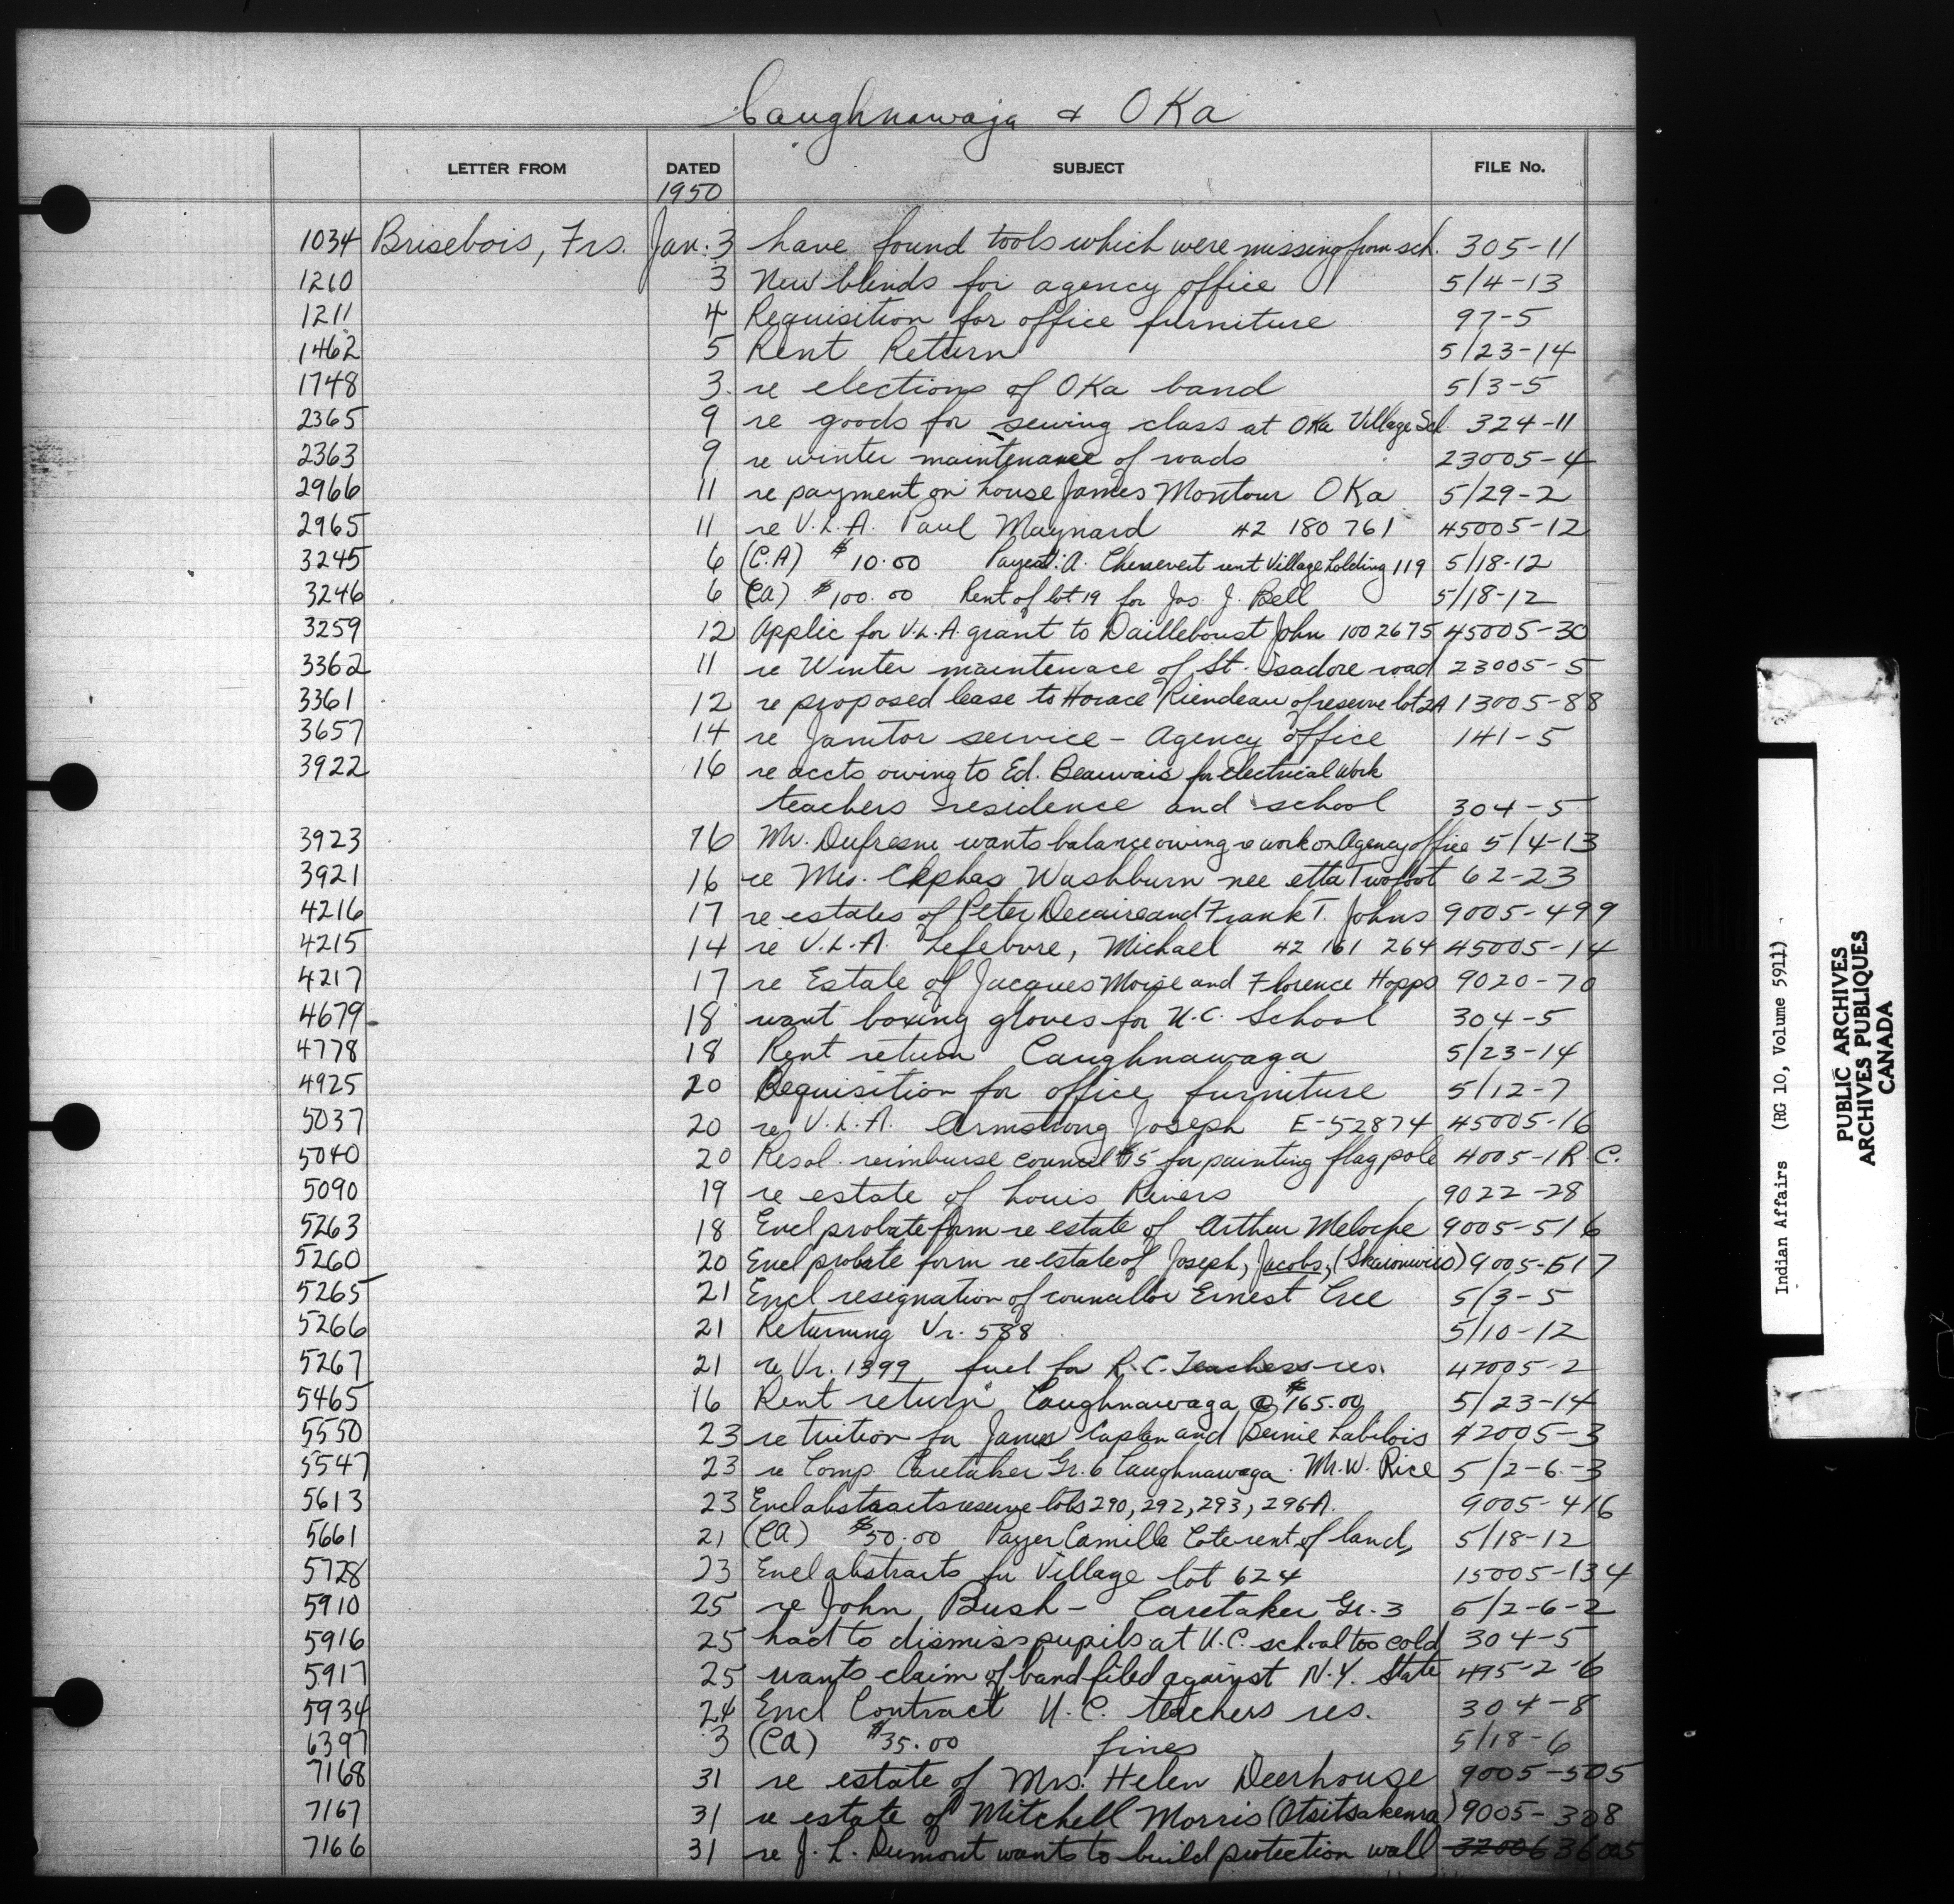 Caughnawaga & OKa
LETTER FROM DATED SUBJECT FILE No.
1950
1034 Brisebois, Frs. Jan. 3 have found tools which were missing from sch. 305-11
1210 3 New blinds for agency office 5/4-13
1211 4 Requisition for office furniture 97-5
1462 5 Rent Return 5/23-14
1748 3 re elections of OKa band 5/3-5
2365 9 re goods for sewing class at OKa Village Scl. 324-11
2363 9 re winter maintenance of roads 23005-4
2966 11 re payment on house James Montour OKa 5/29-2
2965 11 re V.L.A. Paul Maynard 42 180 761 45005-12
3245 6 (C.A) $10.00 A. Chenevert rent Village holding 119 5/18-12
3246 6 (CA) $100.00 Rent of lot 19 for Jas. J. Bell 5/18-12
3259 12 Applic for V.L.A. grant to Dailleboust John 1002675 45005-30
3362 11 re Winter maintenace of St. Isadore road 23005-5
3361 12 re proposed lease to Horace Riendeau of reserve lot 2A 13005-88
3657 14 re Janitor service - Agency office 141-5
3922 16 re accts owing to Ed. Beauvais for electrical work
teachers residence and school 304-5
3923 16 Mr. Dufresne wants balance owing re work on Agency office 5/4-13
3921 16 re Mrs. Cephas Washburn nee etta Twofoot 62-23
4216 17 re estates of Peter Decaire and Frank T. Johns 9005-499
4215 14 re V.L.A. Lefebvre, Michael 42 161 264 45005-14
4217 17 re Estate of Jacques Moise and Florence Hopps 9020-70
4679 18 want boxing gloves for U.C. School 304-5
4778 18 Rent return Caughnawaga 5/23-14
4925 20 Requisition for office furniture 5/12-7
5037 20 re V.L.A. Armstrong Joseph E-52874 45005-16
5040 20 Resol. reimburse council $15 for painting flag pole 4005-1 R.C.
5090 19 re estate of Louis Rivers 9022-28
5263 18 Encl probate form re estate of Arthur Meloche 9005-516
5260 20 Encl probate form re estate of Joseph, Jacobs, 9005-517
5265 21 Encl resignation of councillor Ernest Cree 5/3-5
5266 21 Returning Vr. 588 5/10-12
5267 21 re Vr. 1399 fuel for R.C. Teachers res. 42005-2
5465 16 Rent return Caughnawaga @ $165.00 5/23-14
5550 23 re tuition for James Caplan and Bernie Labilois 42005-3
5547 23 re Comp. Caretaker Gr. 6 Caughnawaga. M.W. Rice 5/2-6-3
5613 23 Encl abstracts reserve lots 290, 292, 293, 296A. 9005-416
5661 21 (CA) $50.00 Payer Camille Cote rent of land, 5/18-12
5728 23 Encl abstracts for Village lot 624 15005-134
5910 25 re John Bush - Caretaker Gr. 3 5/2-6-2
5916 25 had to dismiss pupils at U.C. school too cold 304-5
5917 25 wants claim of band filed against N.Y. State 495-2-6
5934 24 Encl Contract U.C. teachers res. 304-8
6397 3 (CA) $35.00 fines 5/18-6
7168 31 re estate of Mrs. Helen Deerhouse 9005-505
7167 31 re estate of Mitchell Morris (Otsitsakenra) 9005-308
7166 31 re J. L. Dumont wants to build protection wall 32006 36005
Indian Affairs (RG 10, Volume 5911)
PUBLIC ARCHIVES
ARCHIVES PUBLIQUES
CANADA